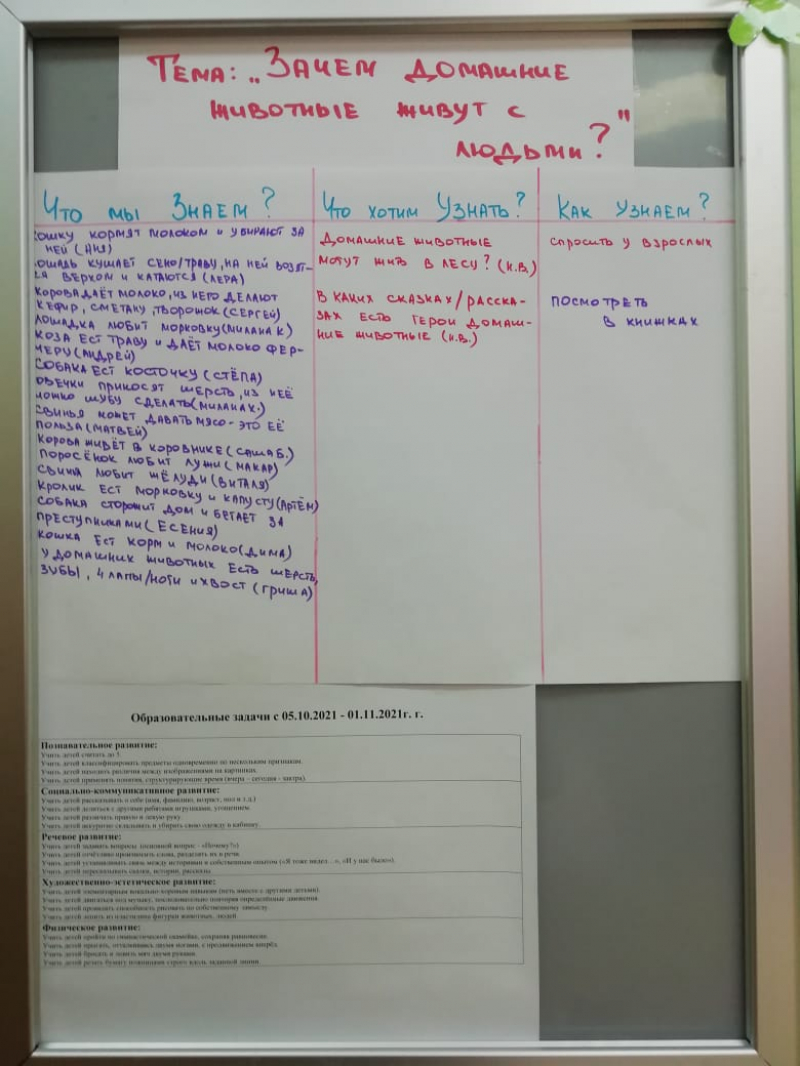 Тема: „Зачем домашние
животные живут с
людьми?"
Что мы знаем?
ошку кормят молоком и убирают за
ней (Аня)
ошадь кушает сено/траву, на ней возят-
ся верхом и катаются (Лера)
Корова даёт молоко, из него делают
кефир, сметану, творожок (Сергей)
Лошадка любит морковку (Милана К)
Коза ест траву и даёт молоко фер-
меру (Андрей)
Собака ест косточку (Стёпа)
Овечки приносят шерсть, из неё
можно шубу сделать (Милана К.)
Свинья может давать мясо - это её
польза (Матвей)
Корова живёт в коровнике (Саша Б.)
Поросёнок любит лужи (Макар)
Свинка любит жёлуди (Виталя)
Кролик ест морковку и капусту (Артём)
Собака сторожит дом и бегает за
преступниками (Есения)
Кошка ест корм и молоко (Дима)
У домашних животных есть шерсть,
зубы, 4 лапы/ноги и хвост (Гриша)
Что хотим узнать?
Домашние животные
могут жить в лесу? (Н.В.)
В каких сказках/расска-
зах есть герои домаш-
ние животные (Н.В.)
Как узнаем?
спросить у взрослых
посмотреть
в книжках
Образовательные задачи с 05.10.2021 - 01.11.2021г. г.
Познавательное развитие:
Учить детей считать до 5.
Учить детей классифицировать предметы одновременно по нескольким признакам.
Учить детей находить различия между изображениями на картинках.
Учить детей применять понятия, структурирующие время (вчера - сегодня - завтра).
Социально-коммуникативное развитие:
Учить детей рассказывать о себе (имя, фамилию, возраст, пол и т.д.)
Учить детей делиться с другими ребятами игрушками, угощением.
Учить детей различать правую и левую руку.
Учить детей аккуратно складывать и убирать свою одежду в кабинку.
Речевое развитие:
Учить детей задавать вопросы (основной вопрос - «Почему?»)
Учить детей отчётливо произносить слова, разделять их в речи.
Учить детей устанавливать связь между историями и собственным опытом («Я тоже видел…», «И у нас было»).
Учить детей пересказывать сказки, истории, рассказы.
Художественно-эстетическое развитие:
Учить детей элементарным вокально-хоровым навыкам (петь вместе с другими детьми).
Учить детей двигаться под музыку, последовательно повторяя определённые движения.
Учить детей проявлять способность рисовать по собственному замыслу.
Учить детей лепить из пластилина фигурки животных, людей.
Физическое развитие:
Учить детей пройти по гимнастической скамейке, сохраняя равновесие.
Учить детей прыгать, отталкиваясь двумя ногами, с продвижением вперёд.
Учить детей бросать и ловить мяч двумя руками.
Учить детей резать бумагу ножницами строго вдоль заданной линии.